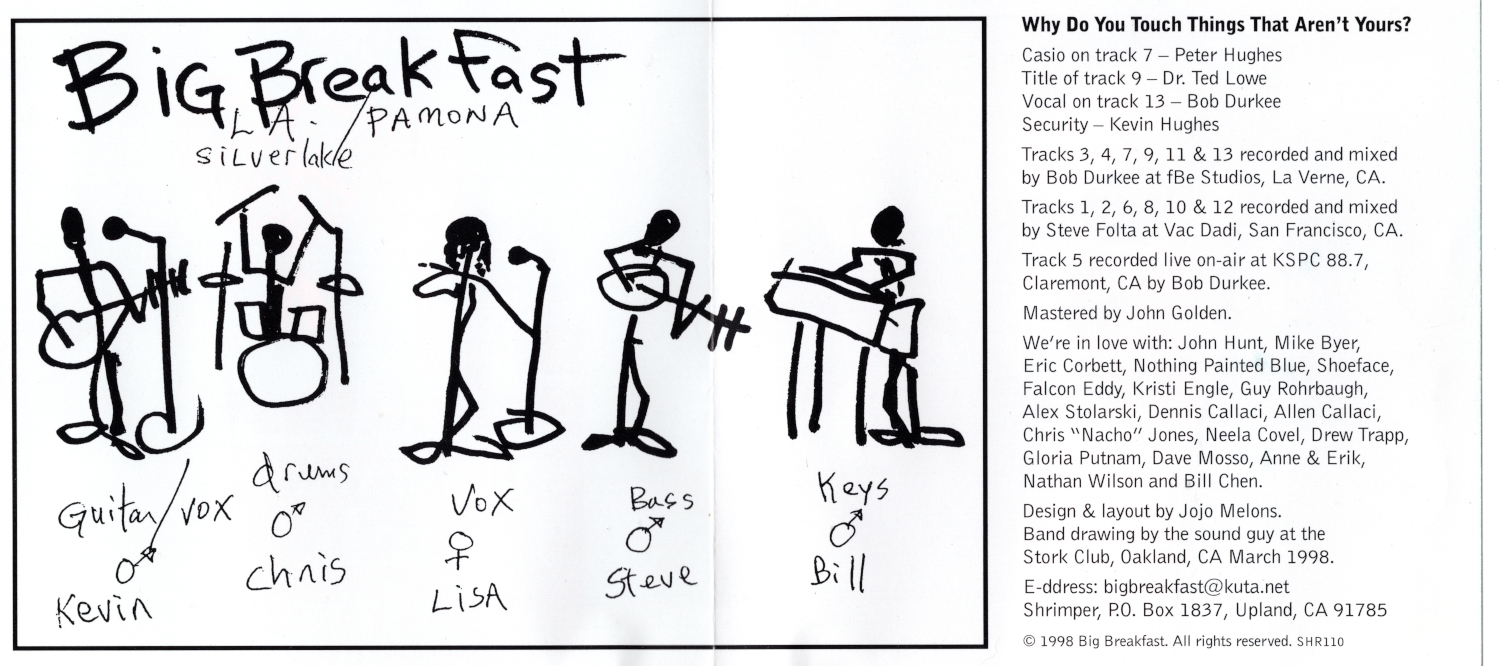 Big Breakfast
L.A. / PAMONA
silverlake
Guitar/vox
♂
Kevin
drums
♂
chris
vox
♀
LisA
Bass
♂
Steve
Keys
♂
Bill
Why Do You Touch Things That Aren't Yours?
Casio on track 7 – Peter Hughes
Title of track 9 – Dr. Ted Lowe
Vocal on track 13 – Bob Durkee
Security – Kevin Hughes
Tracks 3, 4, 7, 9, 11 & 13 recorded and mixed
by Bob Durkee at fBe Studios, La Verne, CA.
Tracks 1, 2, 6, 8, 10 & 12 recorded and mixed
by Steve Folta at Vac Dadi, San Francisco, CA.
Track 5 recorded live on-air at KSPC 88.7,
Claremont, CA by Bob Durkee.
Mastered by John Golden.
We're in love with: John Hunt, Mike Byer,
Eric Corbett, Nothing Painted Blue, Shoeface,
Falcon Eddy, Kristi Engle, Guy Rohrbaugh,
Alex Stolarski, Dennis Callaci, Allen Callaci,
Chris "Nacho" Jones, Neela Covel, Drew Trapp,
Gloria Putnam, Dave Mosso, Anne & Erik,
Nathan Wilson and Bill Chen.
Design & layout by Jojo Melons.
Band drawing by the sound guy at the
Stork Club, Oakland, CA March 1998.
E-ddress: bigbreakfast@kuta.net
Shrimper, P.O. Box 1837, Upland, CA 91785
© 1998 Big Breakfast. All rights reserved. SHR110